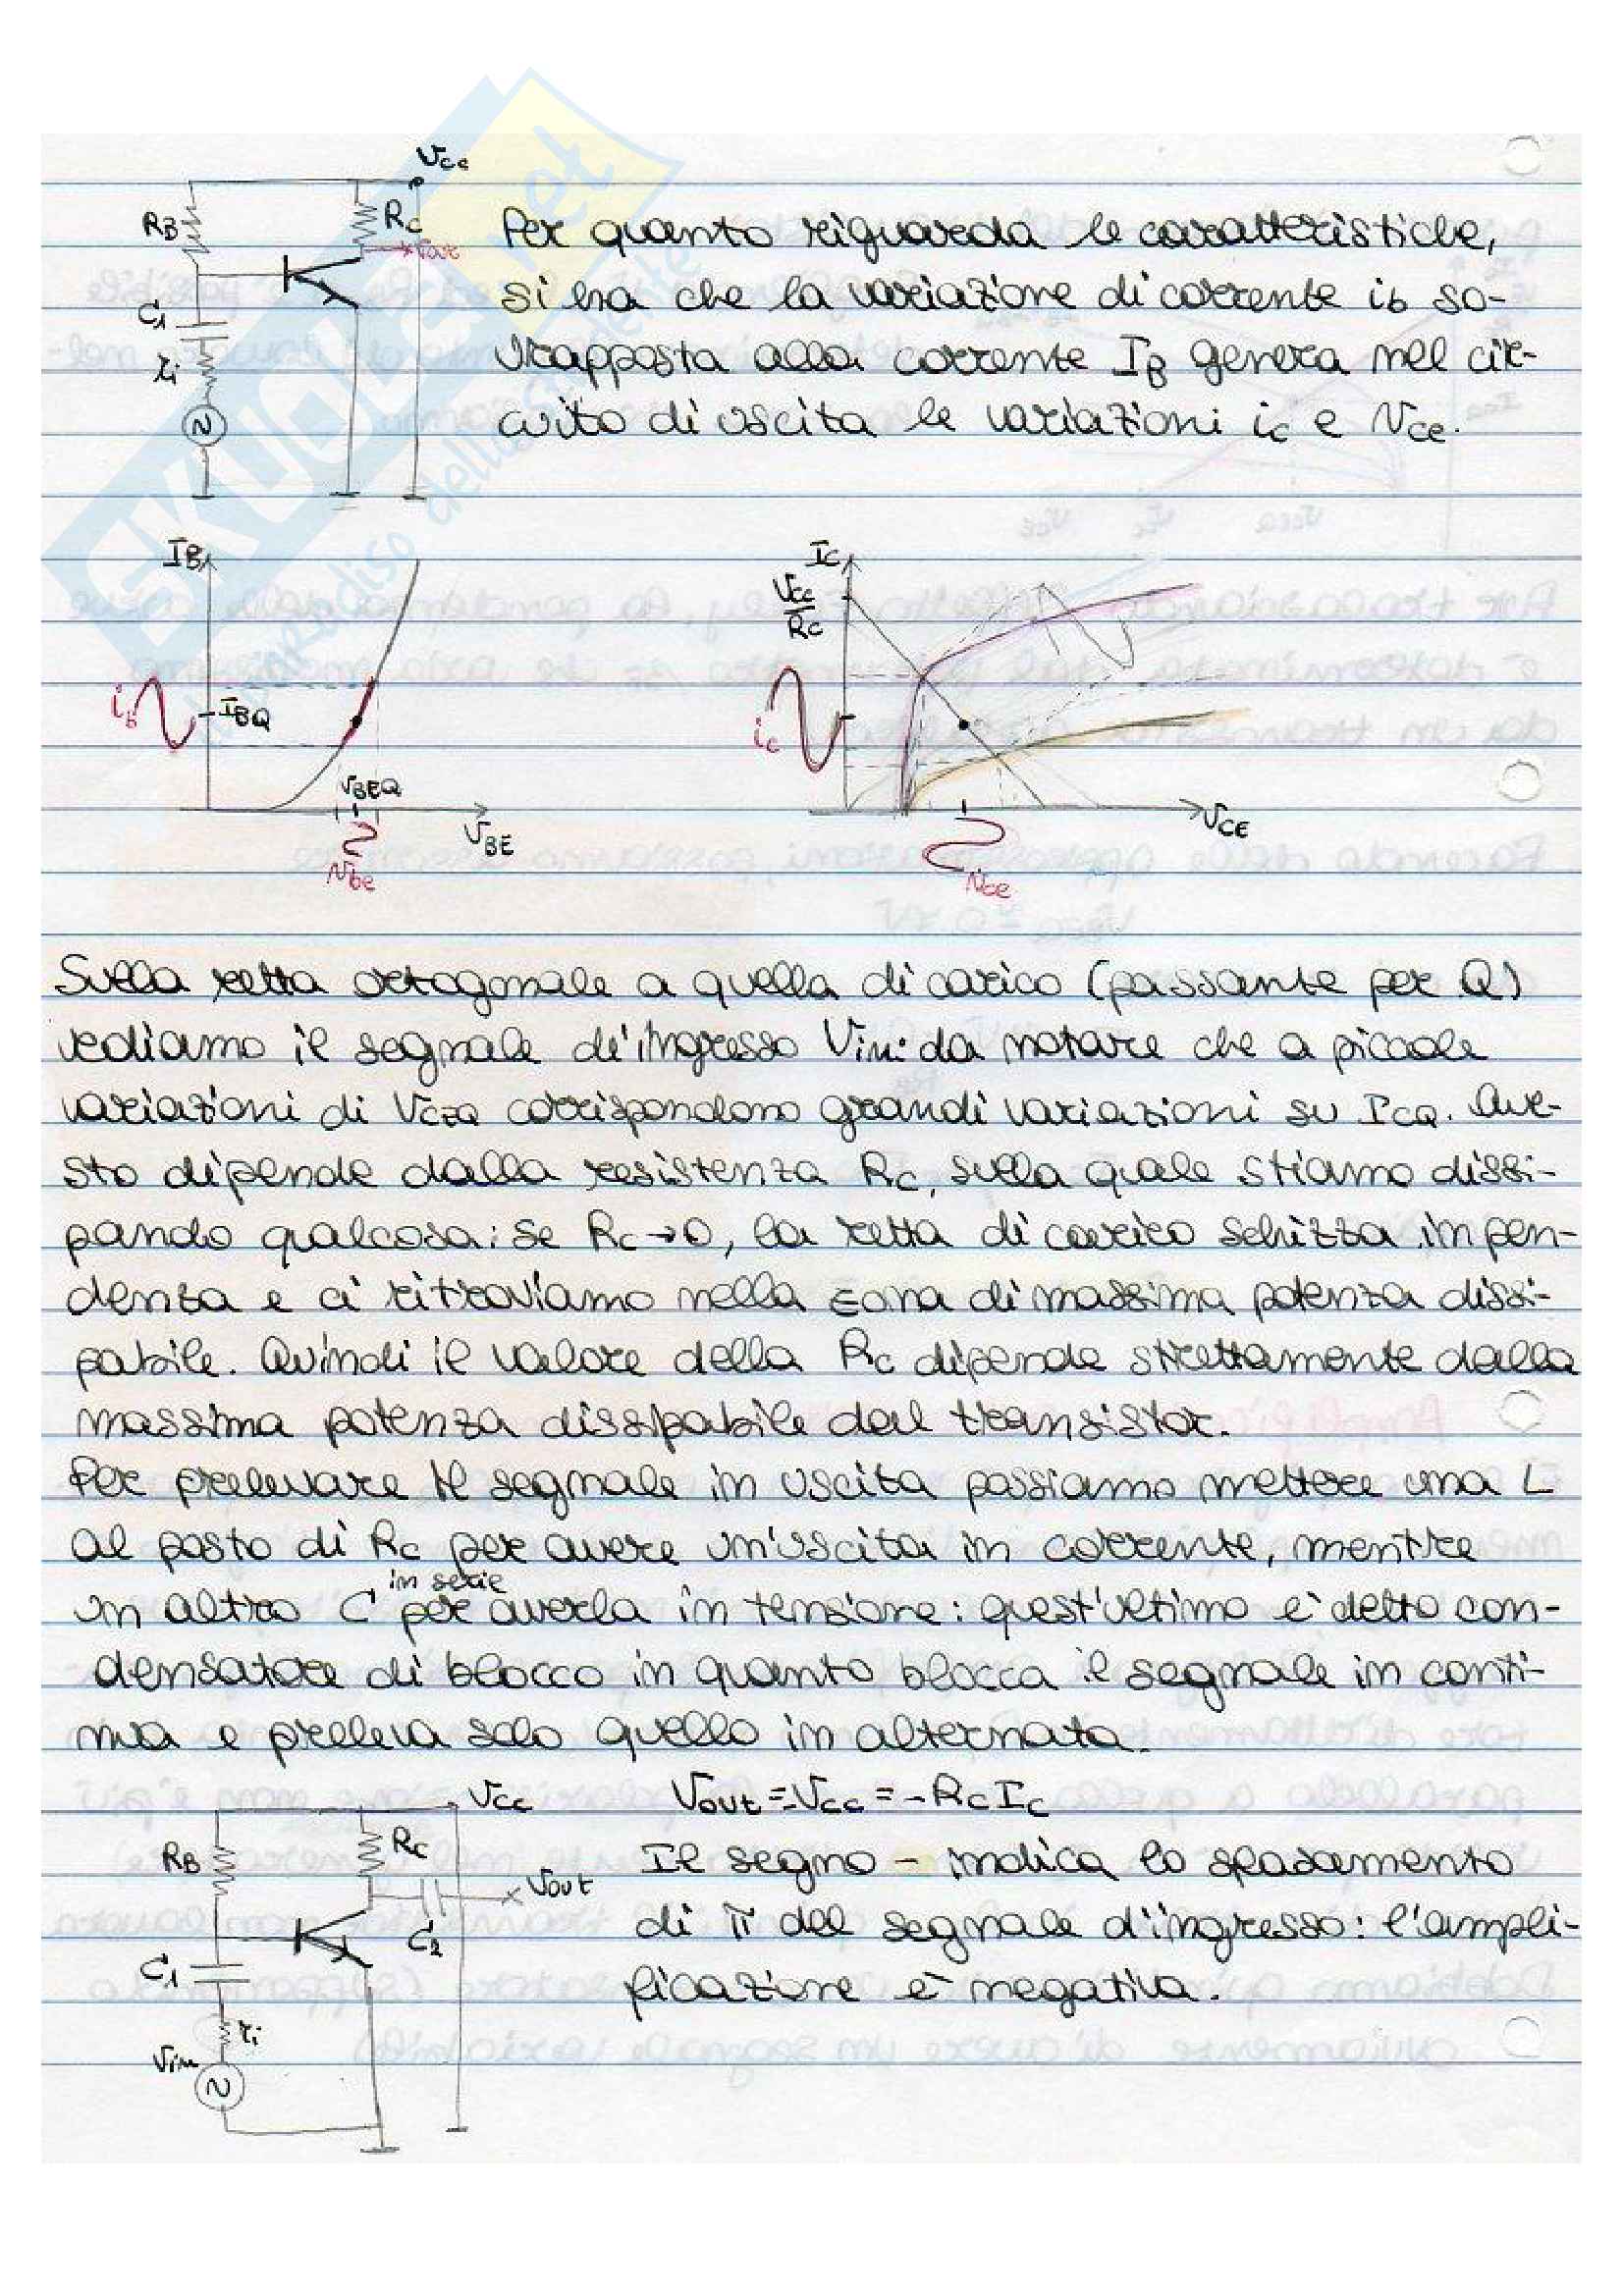 Vcc
RB
RC
Vout
C1
ri
Per quanto riguarda le caratteristiche,
si ha che la variazione di corrente ib so-
vrapposta alla corrente IB genera nel cir-
cuito di uscita le variazioni ic e vce.
IB
ib
IBQ
VBEQ
VBE
vbe
IC
Vcc
RC
ic
VCE
vce
Sulla retta ortogonale a quella di carico (passante per Q)
vediamo il segnale d'ingresso Vin: da notare che a piccole
variazioni di VCEQ corrispondono grandi variazioni su ICQ. Que-
sto dipende dalla resistenza RC, sulla quale stiamo dissi-
pando qualcosa: se RC→0, la retta di carico schizza in pen-
denza e ci ritroviamo nella zona di massima potenza dissi-
pabile. Quindi il valore della RC dipende strettamente dalla
massima potenza dissipabile dal transistor.
Per prelevare il segnale in uscita possiamo mettere una L
al posto di RC per avere un'uscita in corrente, mentre
un altro C in serie per averla in tensione: quest'ultimo è detto con-
densatore di blocco in quanto blocca il segnale in conti-
nua e preleva solo quello in alternata.
Vcc
RB
RC
Vout
C2
C1
ri
Vin
Vout = -Vcc = -RC IC
Il segno - indica lo sfasamento
di π del segnale d'ingresso: l'ampli-
ficazione è negativa.
SKUOLA.net
il paradiso dello studente